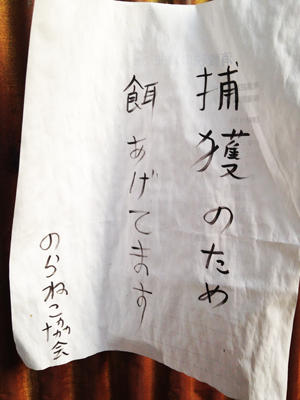 捕獲のため
餌あげてます
のらねこ協会